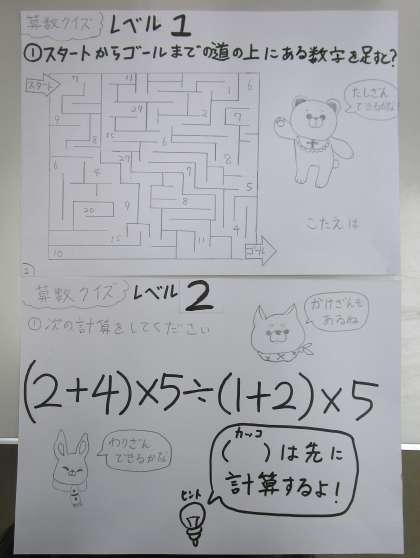 算数クイズ レベル1
①スタートからゴールまでの道の上にある数字を足すと?
スタート
たしざん
できるかな
ゴール
こたえは
算数クイズ レベル2
①次の計算をしてください
かけざんも
あるね
(2+4)×5÷(1+2)×5
わりざん
できるかな
カッコ
( )は先に
計算するよ!
ヒント